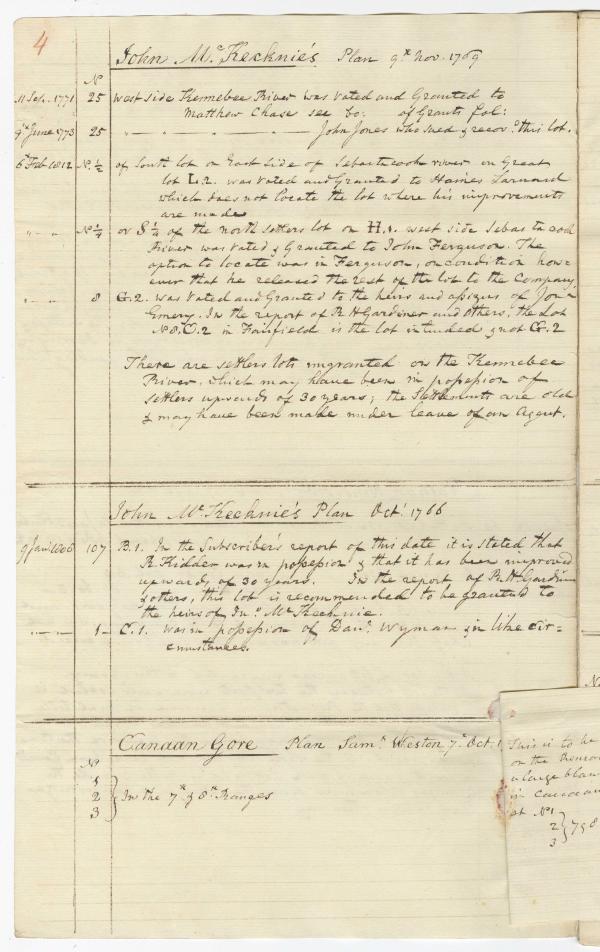 4
John McKecknie's Plan 9th Nov. 1769
No
11 Sep. 1771 25 West side Kennebec River was Voted and Granted to
Matthew Chase see bo: of Grants fol:
9th June 1773 25 " - " - " - John Jones who sued & recovd this lot.
6th Feb 1812 No. ½ of South lot on East side of Sebasticook river on Great
lot L.2. was Voted and Granted to Haines Larnard
which does not locate the lot where his improvements
are made
" - " - No ¼ or S ¼ of the north settlers lot on H.1. west side Sebasticook
River was Voted & Granted to John Ferguson. The
option to locate was in Ferguson, on condition how=
ever that he released the rest of the lot to the Company
" - " 8 G.2. was Voted and Granted to the heirs and assigns of Jona
Emery. In the report of R H Gardiner and others, the Lot
No 8. O.2 in Fairfield is the lot intended & not G.2
There are settlers lots ungranted on the Kennebec
River, which may have been in possession of
settlers upwards of 30 years; the Settlements are old
& may have been made under leave of an Agent.
John McKecknie's Plan Oct. 1766
9 Jan. 1808 107 B.1. In the Subscriber's report of this date it is stated that
R. Kidder was in possession & that it has been improved
upwards of 30 years. In the report of R. H. Gardiner
& others, this lot is recommended to be granted to
the heirs of Jno McKecknie.
" - " 1 - C.1. was in possession of Danl. Wyman & in like cir=
cumstances.
Canaan Gore Plan Saml. Weston 7th Oct. 1
No
1
2 } In the 7th & 8th Ranges
3
N
This is to be
on the
a large blan
in Canaan
at No 1
2 } 7 & 8
3